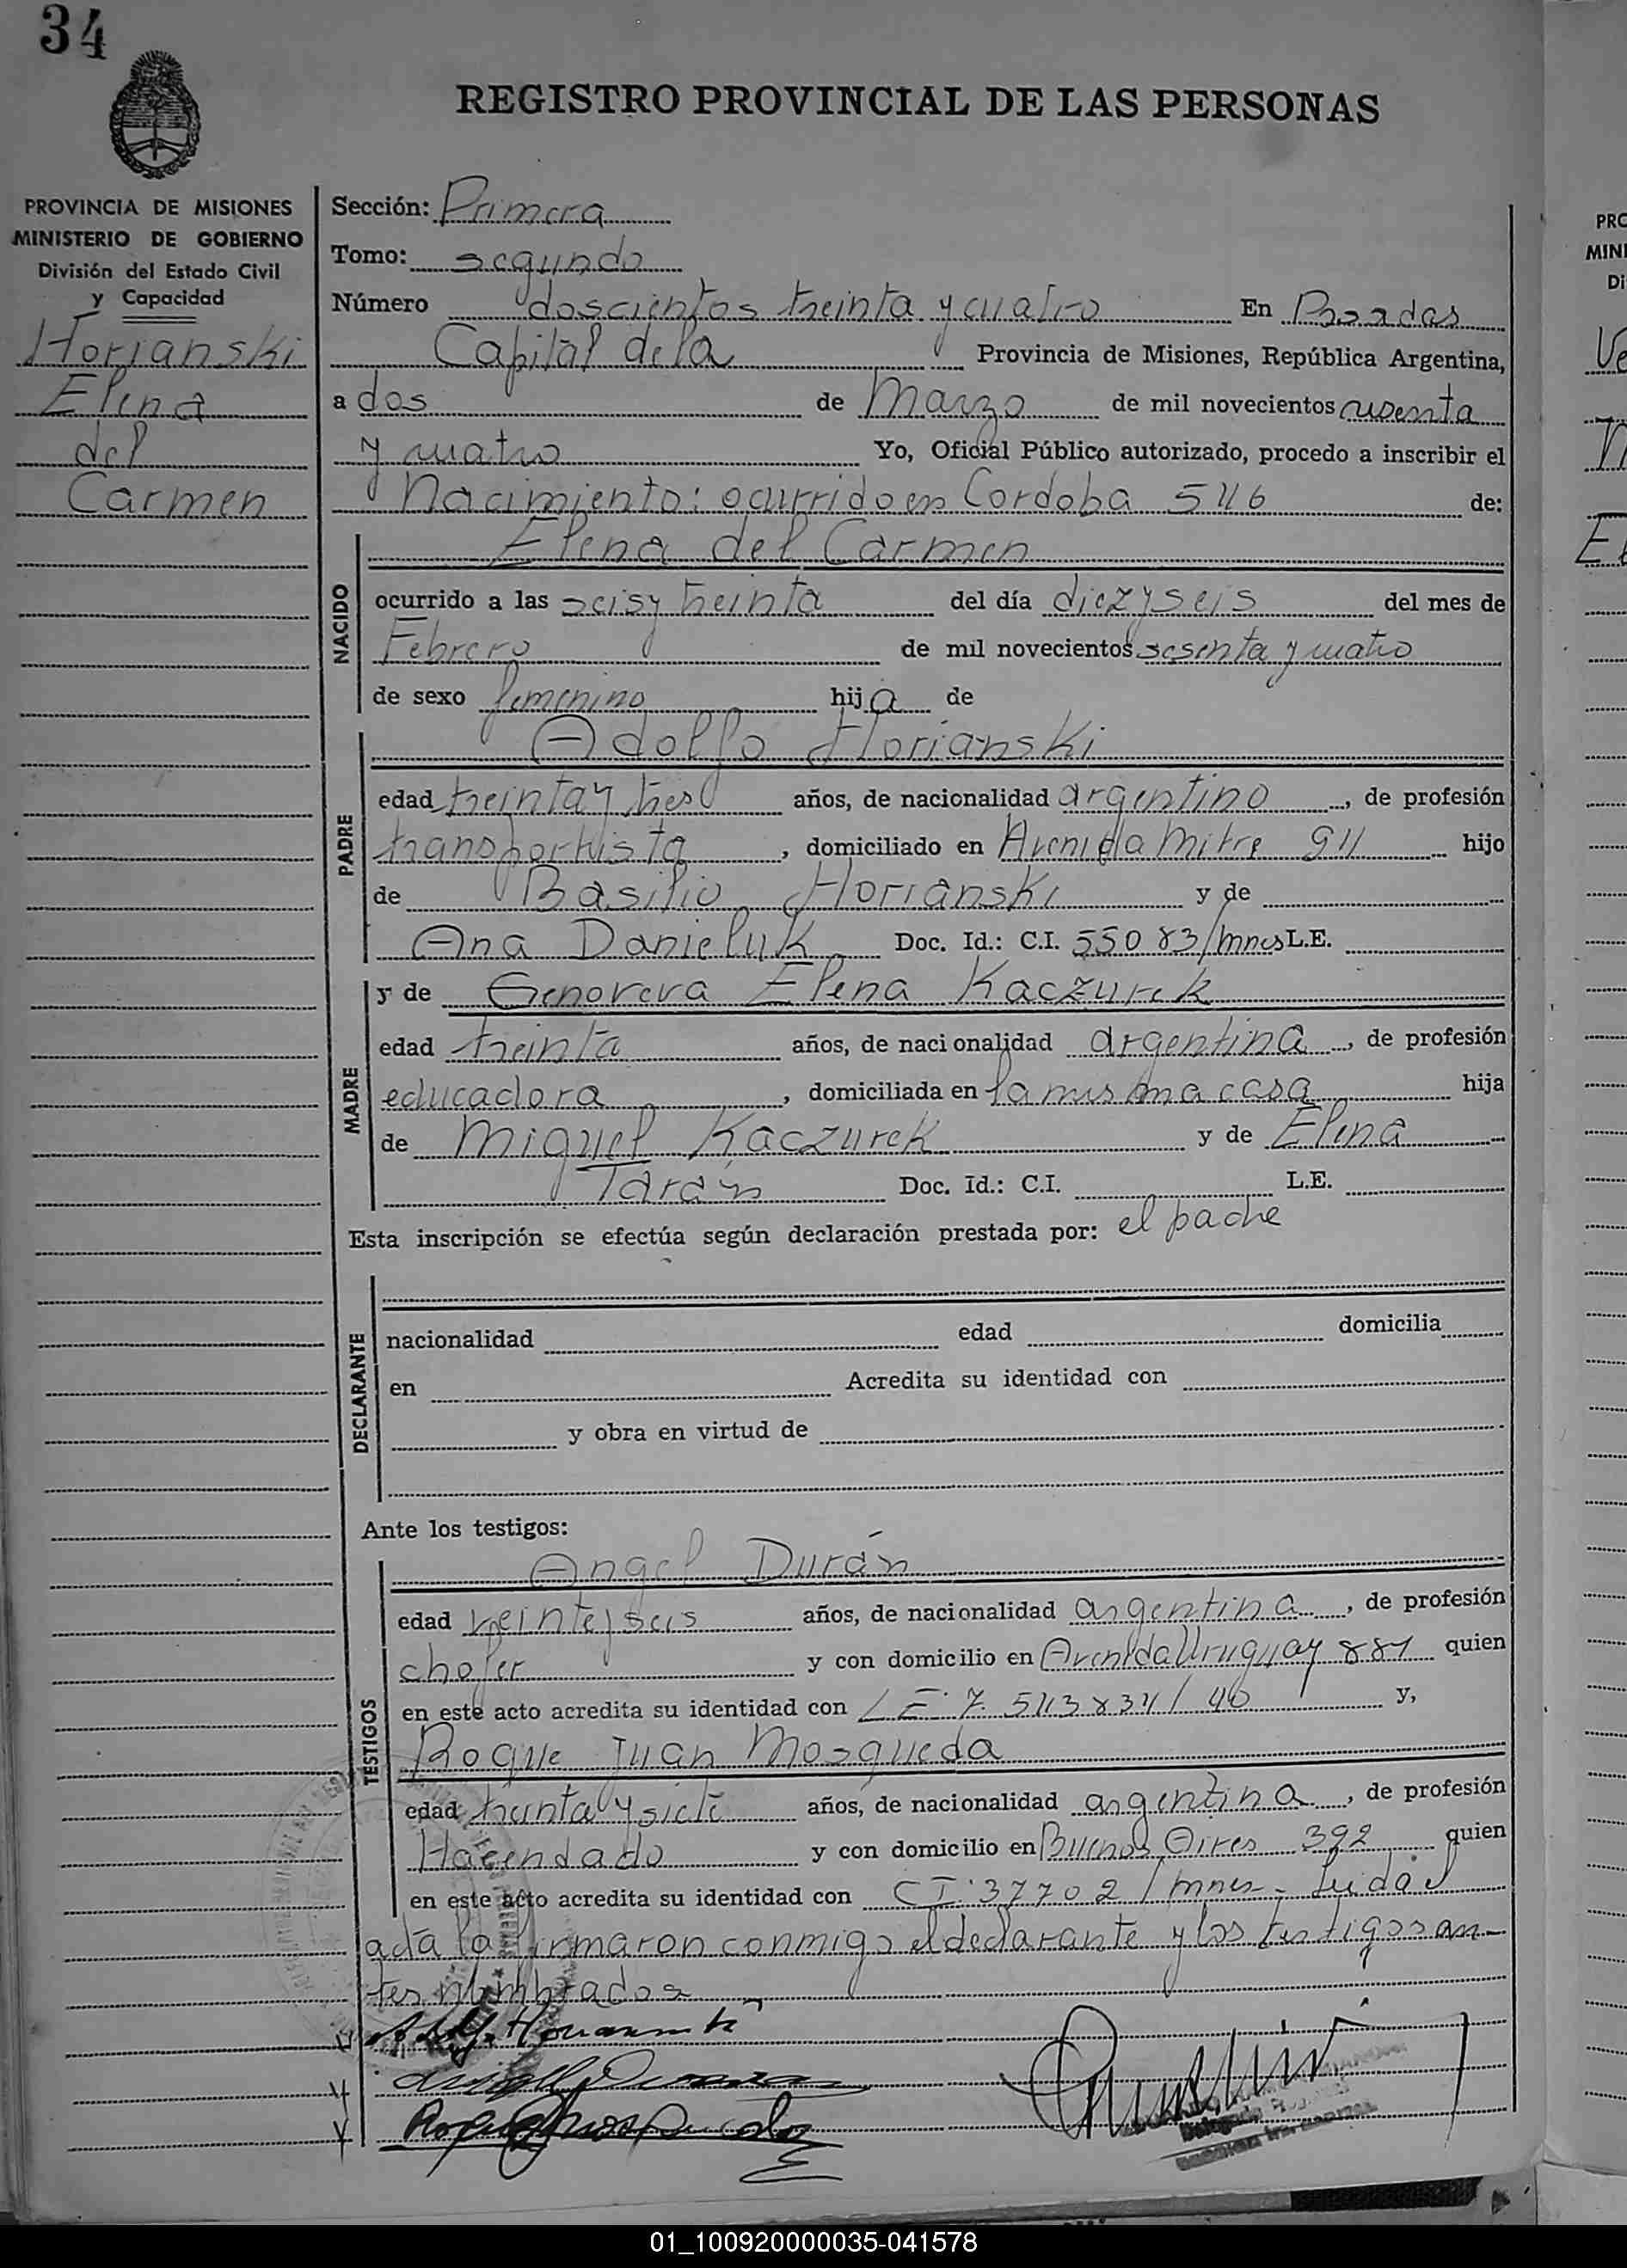 34
REGISTRO PROVINCIAL DE LAS PERSONAS
PROVINCIA DE MISIONES
MINISTERIO DE GOBIERNO
División del Estado Civil
y Capacidad
Horianski
Elena
del
Carmen
Sección: Primera
Tomo: segundo
Número doscientos treinta y cuatro En Posadas
Capital de la Provincia de Misiones, República Argentina,
a dos de Marzo de mil novecientos sesenta
y cuatro Yo, Oficial Público autorizado, procedo a inscribir el
Nacimiento: ocurrido en Cordoba 546 de:
NACIDO
Elena del Carmen
ocurrido a las seis y treinta del día diez y seis del mes de
Febrero de mil novecientos sesenta y cuatro
de sexo femenino hija de
PADRE
Adolfo Horianski
edad treinta y tres años, de nacionalidad argentino, de profesión
transportista, domiciliado en Avenida Mitre 911 hijo
de Basilio Horianski y de
Ana Danieluk Doc. Id.: C.I. 55083/mnes L.E.
MADRE
y de Genoveva Elena Kaczurek
edad treinta años, de nacionalidad argentina, de profesión
educadora, domiciliada en la misma casa hija
de Miguel Kaczurek y de Elena
Tarán Doc. Id.: C.I. L.E.
Esta inscripción se efectúa según declaración prestada por: el padre
DECLARANTE
nacionalidad edad domicilia
en Acredita su identidad con
y obra en virtud de
Ante los testigos:
TESTIGOS
Angel Durán
edad veinte y seis años, de nacionalidad argentina, de profesión
chofer y con domicilio en Avenida Uruguay 881 quien
en este acto acredita su identidad con LE. 7. y,
Roque Juan Mosqueda
edad treinta y siete años, de nacionalidad argentina, de profesión
Hacendado y con domicilio en Buenos Aires 392 quien
en este acto acredita su identidad con CI. 37702/mnes- Leida el
acta la firmaron conmigo el declarante y los testigos an-
tes nombrados
01_100920000035-041578